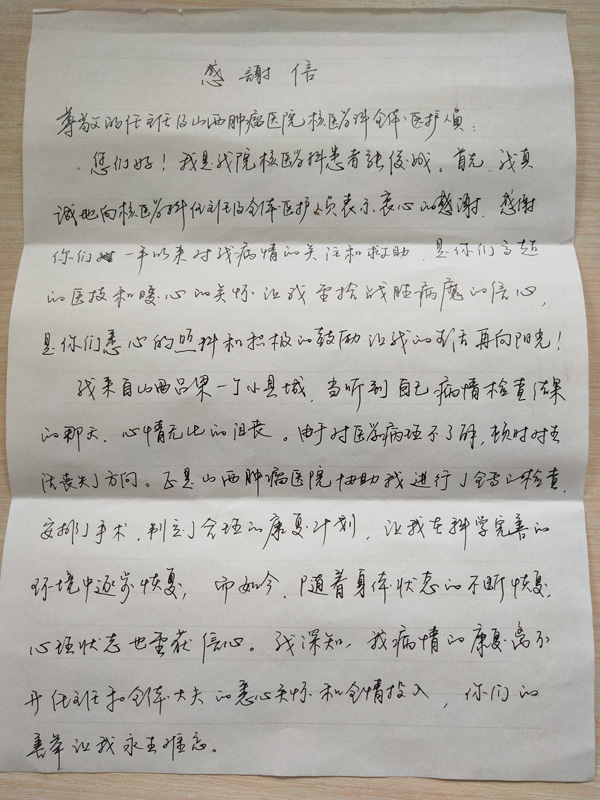 感謝信
尊敬的任主任及山西肿瘤医院核医学科全体医护人员：
您们好！我是我院核医学科患者张俊战。首先，我真
诚地向核医学科任主任及全体医护人员表示衷心的感谢，感谢
你们一年以来对我病情的关注和救助，是你们高超
的医技和暖心的关怀让我重拾战胜病魔的信心，
是你们悉心的照料和积极的鼓励让我的生活再向阳光！
我来自山西吕梁一个小县城，当听到自己病情检查结果
的那天，心情无比的沮丧。由于对医学病理不了解，顿时对生
活丧失了方向。正是山西肿瘤医院协助我进行了全面检查，
安排了手术，制定了合理的康复计划，让我在科学完善的
环境中逐步恢复，而如今，随着身体状态的不断恢复，
心理状态也重获信心。我深知，我病情的康复离不
开任主任和全体大夫的悉心关怀和全情投入，你们的
善举让我永生难忘。